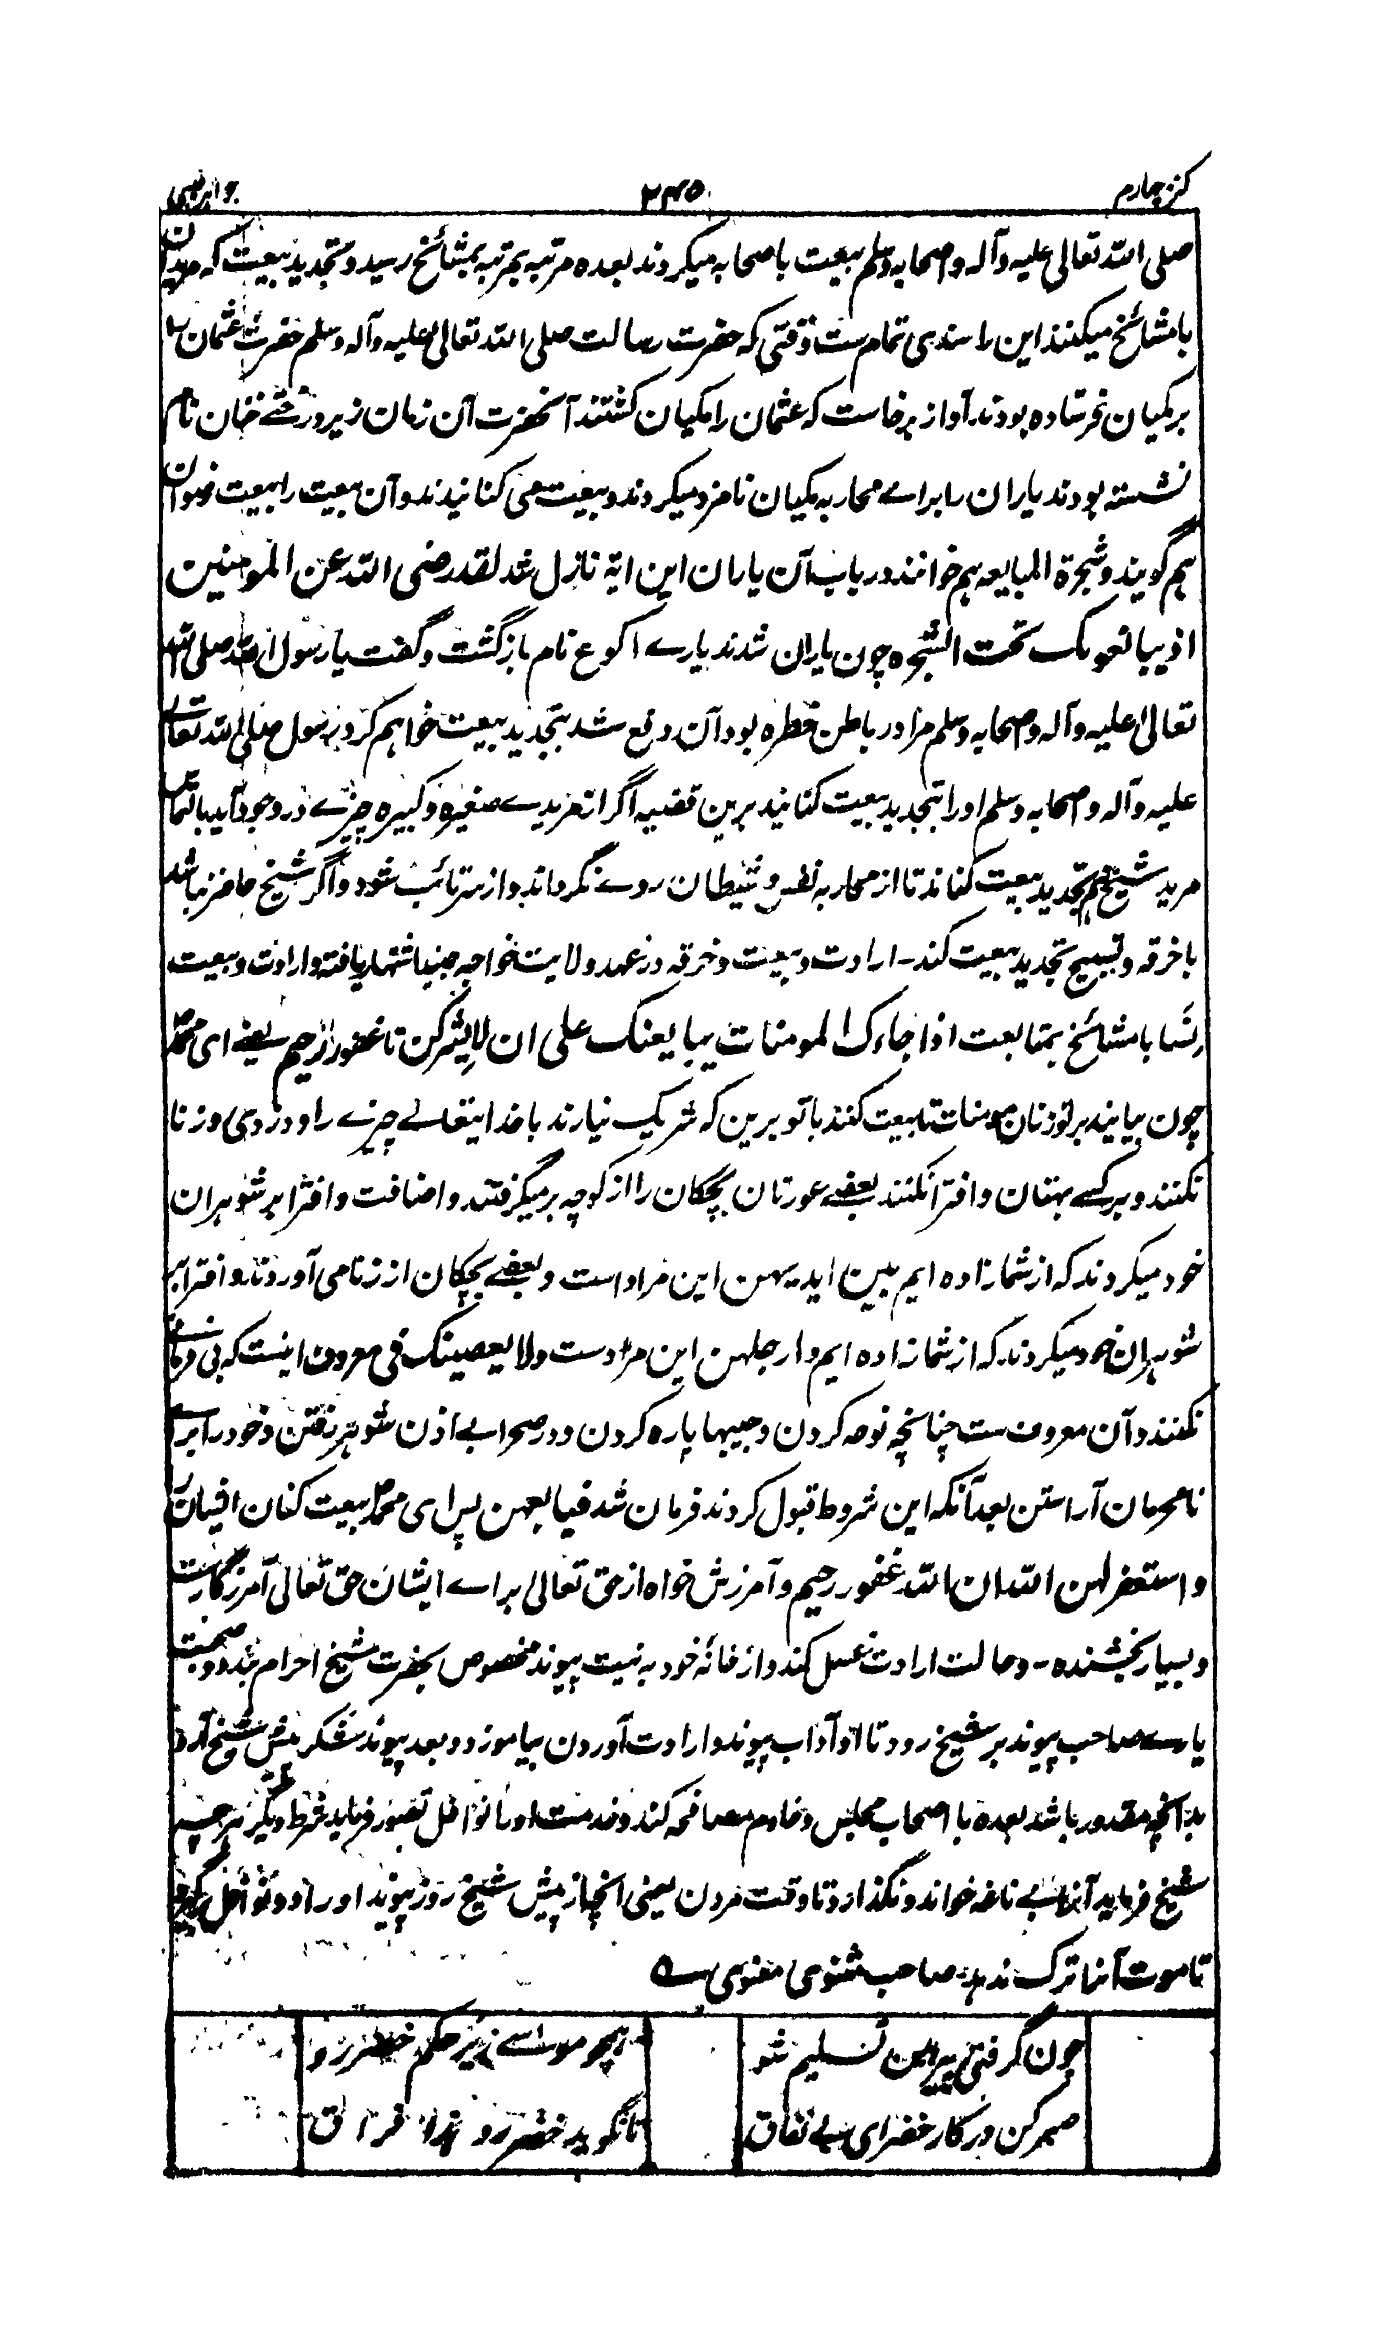 کنز چهارم
۲۴۵
جواهر غیبی
صلی الله تعالی علیه وآله واصحابه وسلم بیعت باصحابه میکردند بعده مرتبه بمرتبه بمشائخ رسید و تجدید بیعت که مریدان
با مشائخ میکنند این را سندی تمام ست وقتی که حضرت رسالت صلی الله تعالی علیه وآله وسلم حضرت عثمان را
بر مکیان بفرستاده بودند آواز برخاست که عثمان را مکیان کشتند آنحضرت آن زمان زیر درختے نام
نشسته بودند یاران را براے محاربه مکیان نامزد میکردند و بیعت می کنانیدند و آن بیعت را بیعت رضوان
هم گویند و شجرة المبایعه هم خوانند در باب آن یاران این ایة نازل شد لقد رضی الله عن المومنین
اذ یبایعونک تحت الشجره چون یاران شدند یارے اکوع نام بازگشت و گفت یا رسول الله صلی الله
تعالی علیه وآله واصحابه وسلم مرا در باطن خطره بود آن دفع شد تجدید بیعت خواهم کرد رسول صلی الله تعالی
علیه وآله واصحابه وسلم اورا تجدید بیعت کنانید برین قضیه اگر از مریدے صغیره و کبیره چیزے در وجود آید بالتماس
مرید شیخ هم تجدید بیعت کناند تا از محاربه نفس و شیطان روے نگرداند و از سر تائب شود و اگر شیخ حاضر نباشد
با خرقه و تسبیح تجدید بیعت کند۔ ارادت و بیعت و خرقه در عهد ولایت خواجه جنید اشتهار یافته و ارادت و بیعت
نسا با مشائخ بمتابعت اذا جاءک المومنات یبایعنک علی ان لایشرکن تا غفور الرحیم یعنے ای محمد
چون بیایند بر تو زنان مومنات تا بیعت کنند با تو برین که شریک نیارند با خدایتعالے چیزے را و دزدی و زنا
نکنند و بر کسے بهتان و افترا نکنند بعضے عورتان بچکان را از کوچه بر میگرفتند و اضافت و افترا بر شوهران
خود میکردند که از شما زاده ایم بین ایدیهن این مراد است و بعضے بچکان از زنا می آوردند و افترا بر
شوهران خود میکردند که از شما زاده ایم وارجلهن این مرادست ولا یعصینک فی معروف اینست که بی فرمانے
نکنند و آن معروف ست چنانچه نوحه کردن و جیبها پاره کردن و در صحرا بے اذن شوهر رفتن و خود را براے
نامحرمان آراستن بعد آنکه این شروط قبول کردند فرمان شد فبایعهن پس ای محمد بیعت کنان ایشان را
واستغفر لهن الله ان الله غفور رحیم و آمرزش خواه از حق تعالی براے ایشان حق تعالی آمرزگارست
و بسیار بخشنده۔ و حالت ارادت غسل کند و از خانه خود به نیت پیوند مخصوص بحضرت شیخ احرام بندد و صحبت
یارے صاحب پیوند بر شیخ رود تا او آداب پیوند و ارادت آوردن بیاموزد و بعد پیوند شکر پیش شیخ آرد
بد انچه مقدور باشد بعده با اصحاب مجلس و خادم مصافحه کند و خدمت اورا نوافل تصور فرماید شرط دیگر هر چه
شیخ فرماید آنرا بے ناغه خواند و نگذارد تا وقت مردن یعنی انچه از پیش شیخ روز پیوند اوراد و نوافل
تا موت آنرا ترک ندهد۔ صاحب مثنوی معنوی ے
چون گرفتی پیر هین تسلیم شو
همچو موسے زیر حکم خضر رو
صبر کن در کار خضر ای بے نفاق
تا نگوید خضر رو هذا فراق